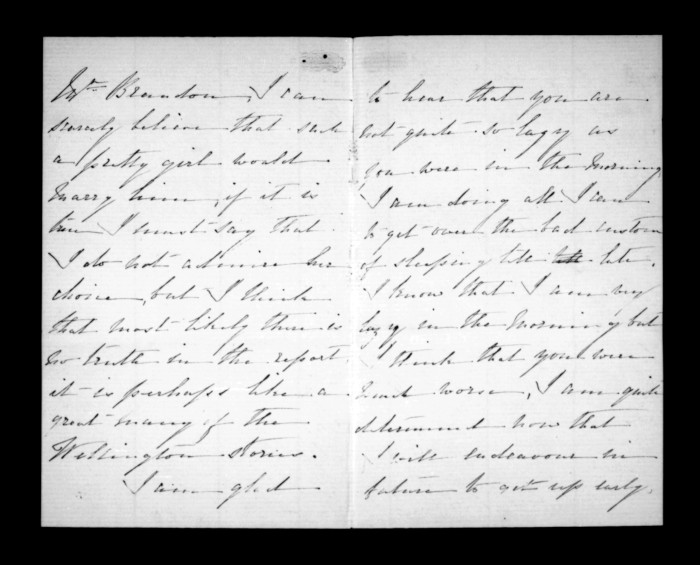 Mr. Brandon, I can
scarcely believe that such
a pretty girl would
marry him, if it is
true I must say that
I do not admire her
choice, but I think
that most likely there is
no truth in the report.
it is perhaps like a
great many of the
Wellington stories.
I am glad
to hear that you are
not quite so lazy as
you were in the morning,
I am doing all I can
to get over the bad custom
of sleeping till late.
I know that I am very
lazy in the morning but
I think that you were
worse, I am quite
determined now that
I will endeavour in
future to get up early.